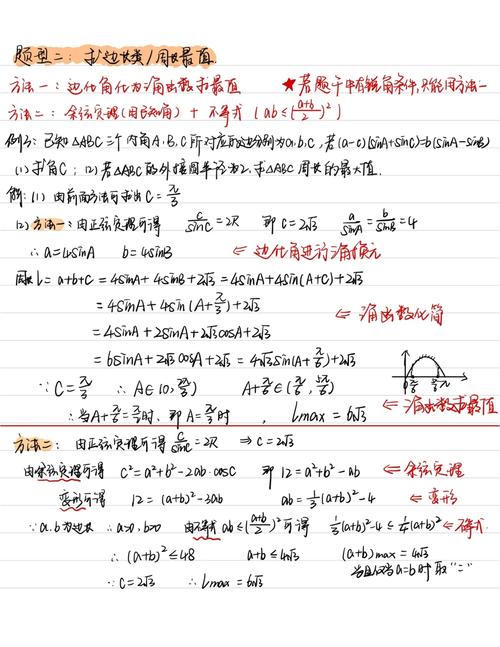 题型二：求边长类/周长最值.
方法一：边化角化为三角函数求最值 ★若题干中有锐角条件，只能用方法一
方法二：余弦定理(由已知角) + 不等式 (ab≤(a+b/2)²)
例3：已知△ABC三个内角A.B.C所对应的边分别为a,b,c，若(a-c)(sinA+sinC)=b(sinA-sinB)
(1)求角C；(2)若△ABC的外接圆半径为2，求△ABC周长的最大值.
解：(1) 由前面方法可求出C=π/3
(2)方法一：由正弦定理可得 c/sinC=2R 即c=2√3 a/sinA=b/sinB=4
∴a=4sinA b=4sinB ⇐ 边化角进行三角换元
周长l=a+b+c=4sinA+4sinB+2√3=4sinA+4sin(A+C)+2√3
=4sinA+4sin(A+π/3)+2√3
=4sinA+2sinA+2√3cosA+2√3 ⇐ 三角函数化简
=6sinA+2√3cosA+2√3=4√3sin(A+π/6)+2√3
∵C=π/3 ∴A∈(0,2π/3) A+π/6∈(π/6,5π/6)
∴当A+π/6=π/2时，即A=π/3时，lmax=6√3 ⇐ 三角函数求最值
π/6 5π/6 π
方法二：由正弦定理可得c/sinC=2R ⇒c=2√3
由余弦定理可得 c²=a²+b²-2ab·cosC 即12=a²+b²-ab ⇐余弦定理
变形可得 12=(a+b)²-3ab ab=1/3(a+b)²-4 ⇐变形
∵a.b为边长 ∴a>0,b>0 由不等式ab≤(a+b/2)²可得 1/3(a+b)²-4≤1/4(a+b)² ⇐不等式
∴(a+b)²≤48 a+b≤4√3 (a+b)max=4√3
当且仅当a=b时取"="
∵c=2√3 ∴lmax=6√3